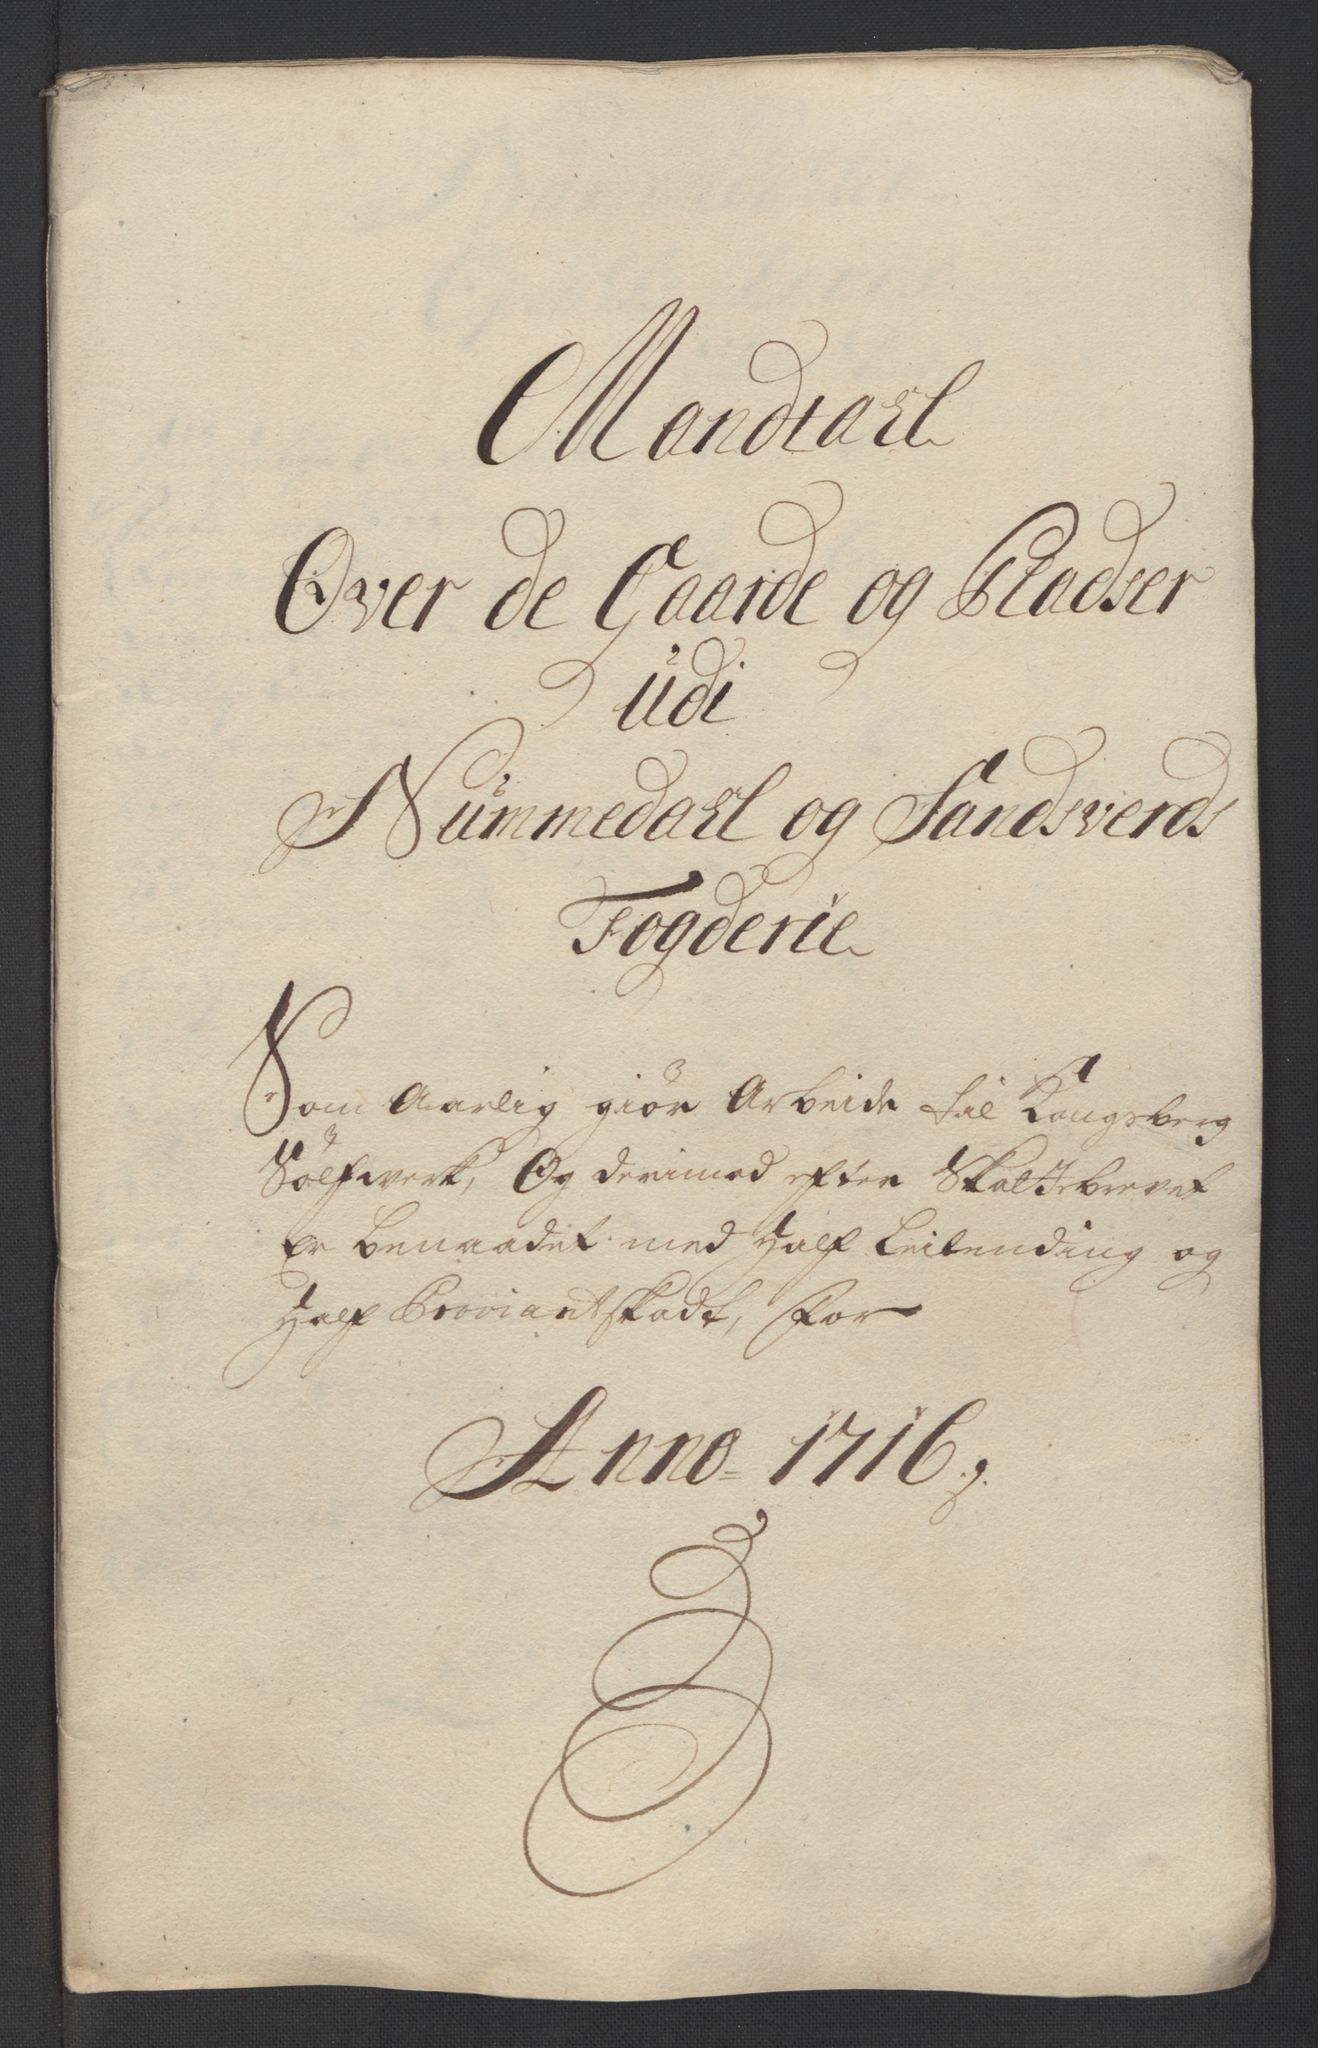 Mandtall
Over de Gaarde og Pladser
udi
Nummedall og Sandsverds
Fogderie
Som Aarlig giör Arbeide til Kongsberg
Sölfwerk, Og derimod efter Skattebrevet
Er benaadet med Half Leilending og
Half Proviantskadt, For
Anno 1716